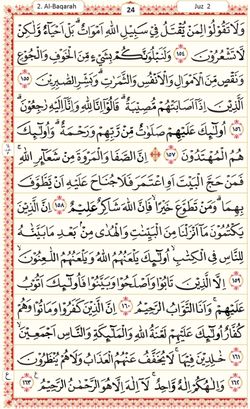 2. Al-Baqarah 24 Juz 2
وَلَا تَقُولُوا لِمَنْ يُقْتَلُ فِي سَبِيلِ اللَّهِ أَمْوَاتٌ ۚ بَلْ أَحْيَاءٌ وَلَٰكِنْ
لَا تَشْعُرُونَ ١٥٤ وَلَنَبْلُوَنَّكُمْ بِشَيْءٍ مِنَ الْخَوْفِ وَالْجُوعِ
وَنَقْصٍ مِنَ الْأَمْوَالِ وَالْأَنْفُسِ وَالثَّمَرَاتِ ۗ وَبَشِّرِ الصَّابِرِينَ ١٥٥
الَّذِينَ إِذَا أَصَابَتْهُمْ مُصِيبَةٌ ۙ قَالُوا إِنَّا لِلَّهِ وَإِنَّا إِلَيْهِ رَاجِعُونَ
١٥٦ أُولَٰئِكَ عَلَيْهِمْ صَلَوَاتٌ مِنْ رَبِّهِمْ وَرَحْمَةٌ ۖ وَأُولَٰئِكَ
هُمُ الْمُهْتَدُونَ ١٥٧ إِنَّ الصَّفَا وَالْمَرْوَةَ مِنْ شَعَائِرِ اللَّهِ ۖ
فَمَنْ حَجَّ الْبَيْتَ أَوِ اعْتَمَرَ فَلَا جُنَاحَ عَلَيْهِ أَنْ يَطَّوَّفَ
بِهِمَا ۚ وَمَنْ تَطَوَّعَ خَيْرًا فَإِنَّ اللَّهَ شَاكِرٌ عَلِيمٌ ١٥٨ إِنَّ الَّذِينَ
يَكْتُمُونَ مَا أَنْزَلْنَا مِنَ الْبَيِّنَاتِ وَالْهُدَىٰ مِنْ بَعْدِ مَا بَيَّنَّاهُ
لِلنَّاسِ فِي الْكِتَابِ ۙ أُولَٰئِكَ يَلْعَنُهُمُ اللَّهُ وَيَلْعَنُهُمُ اللَّاعِنُونَ
١٥٩ إِلَّا الَّذِينَ تَابُوا وَأَصْلَحُوا وَبَيَّنُوا فَأُولَٰئِكَ أَتُوبُ
عَلَيْهِمْ ۚ وَأَنَا التَّوَّابُ الرَّحِيمُ ١٦٠ إِنَّ الَّذِينَ كَفَرُوا وَمَاتُوا وَهُمْ
كُفَّارٌ أُولَٰئِكَ عَلَيْهِمْ لَعْنَةُ اللَّهِ وَالْمَلَائِكَةِ وَالنَّاسِ أَجْمَعِينَ
١٦١ خَالِدِينَ فِيهَا ۖ لَا يُخَفَّفُ عَنْهُمُ الْعَذَابُ وَلَا هُمْ يُنْظَرُونَ
١٦٢ وَإِلَٰهُكُمْ إِلَٰهٌ وَاحِدٌ ۖ لَا إِلَٰهَ إِلَّا هُوَ الرَّحْمَٰنُ الرَّحِيمُ ١٦٣